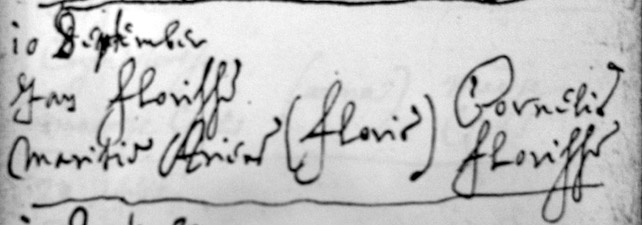 10 September
Jan Florisse
Maritie Aries (Floris) Cornelis
Florisse